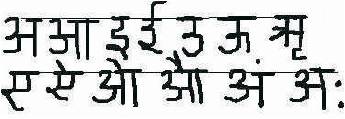 अ आ इ ई उ ऊ ऋ
ए ऐ ओ औ अं अः